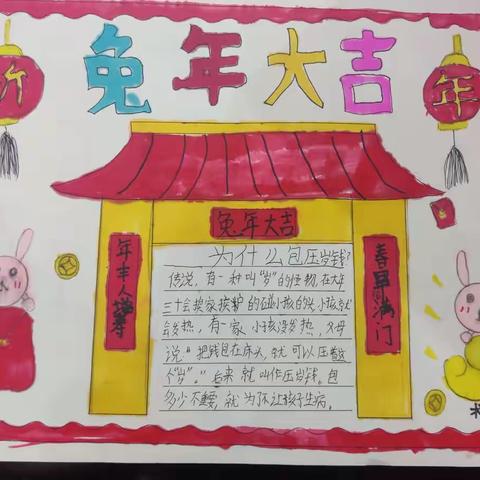 兔年大吉
新
年
兔年大吉
年丰人增寿
春早福满门
为什么包压岁钱?
传说，有一种叫“岁”的怪物，在大年
三十会挨家挨护的碰小孩的头，小孩就
会发热，有一家小孩没发热，父母
说“把钱包在床头，就可以压着这
个“岁”。”后来就叫作压岁钱。包
多少不重要，就为了不让孩子生病。